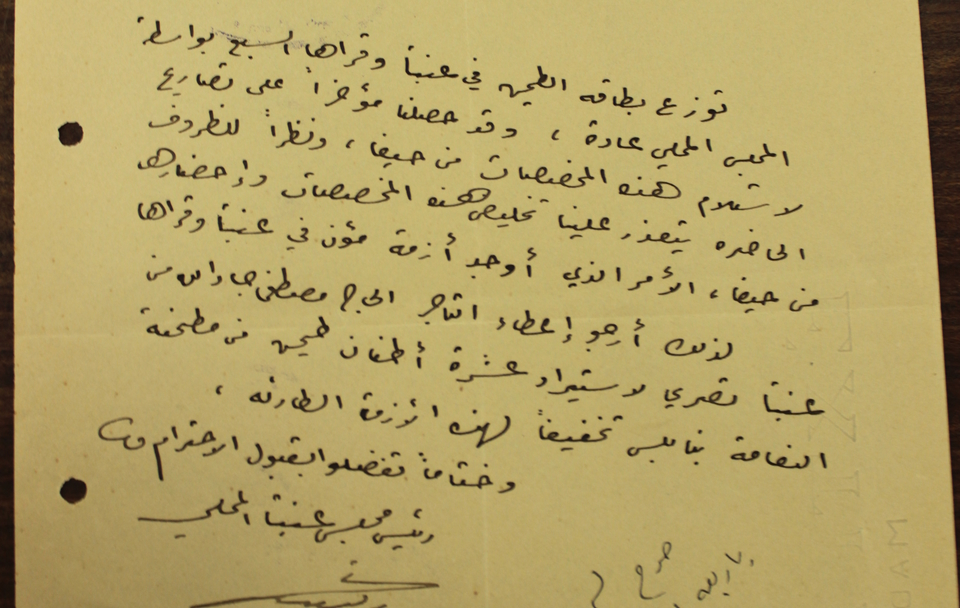 توزع بطاقه الطحين في عنبتا وقراها السبع بواسطة
المجلس المحلي عادة ، وقد حصلنا مؤخراً على تصاريح
لاستلام هذه المخصصات من حيفا ، ونظراً للظروف
الحاضره يتعذر علينا تخليص هذه المخصصات وإحضارها
من حيفا ، الأمر الذي أوجد أزمة مؤن في عنبتا وقراها
لذلك أرجو إعطاء التاجر الحاج مصطفى من
عنبتا تصريح لاستيراد عشرة أطنان طحين من مطحنة
بنابلس تخفيفاً لهذه الأزمة الطارئه ،
وختاماً تفضلوا بقبول الاحترام
رئيس مجلس عنبتا المحلي